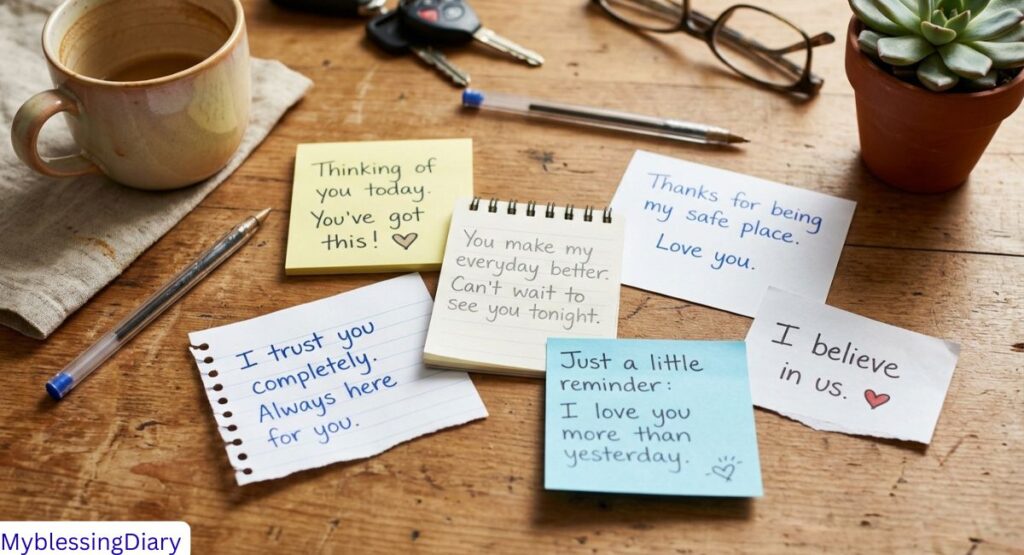 Thinking of
you today.
You've got
this!
You make my
everyday better.
Can't wait to
see you tonight.
Thanks for being
my safe place.
Love you.
I trust you
completely.
Always here
for you.
Just a little
reminder:
I love you
more than
yesterday.
I believe
in us.
MyblessingDiary